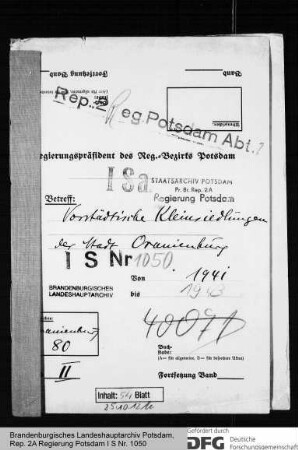 Band
Fortsetzung Band
Rep. 2
Reg. Potsdam Abt. I
Regierungspräsident des Reg.-Bezirks Potsdam
I Sa
STAATSARCHIV POTSDAM
Pr. Br. Rep. 2A
Regierung Potsdam
Betreff:
Vorstädtische Kleinsiedlungen
der Stadt Oranienburg
I S Nr 1050
Von 1941
BRANDENBURGISCHES
LANDESHAUPTARCHIV
bis 1943
Oranienburg
80
II
Fortsetzung Band
Inhalt: 54 Blatt
Brandenburgisches Landeshauptarchiv Potsdam,
Rep. 2A Regierung Potsdam I S Nr. 1050
Gefördert durch
DFG Deutsche
Forschungsgemeinschaft